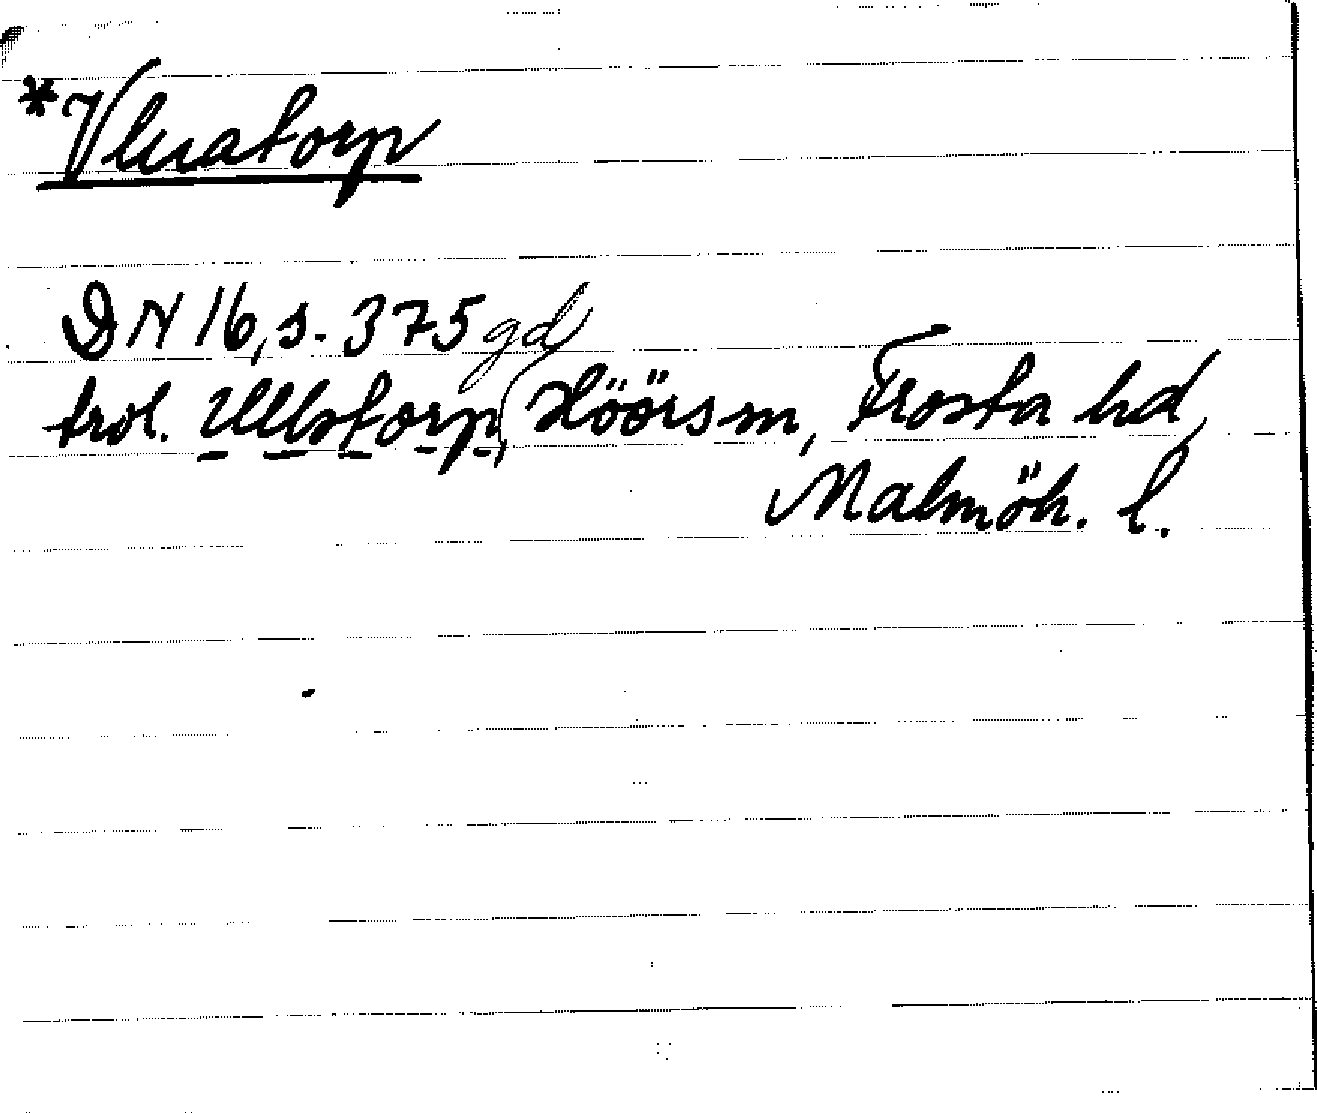 *Vlustorp
DN 16, s. 375
gd
trol. Ullstorp, Höörs sn, Frosta hd,
Malmöh. l.